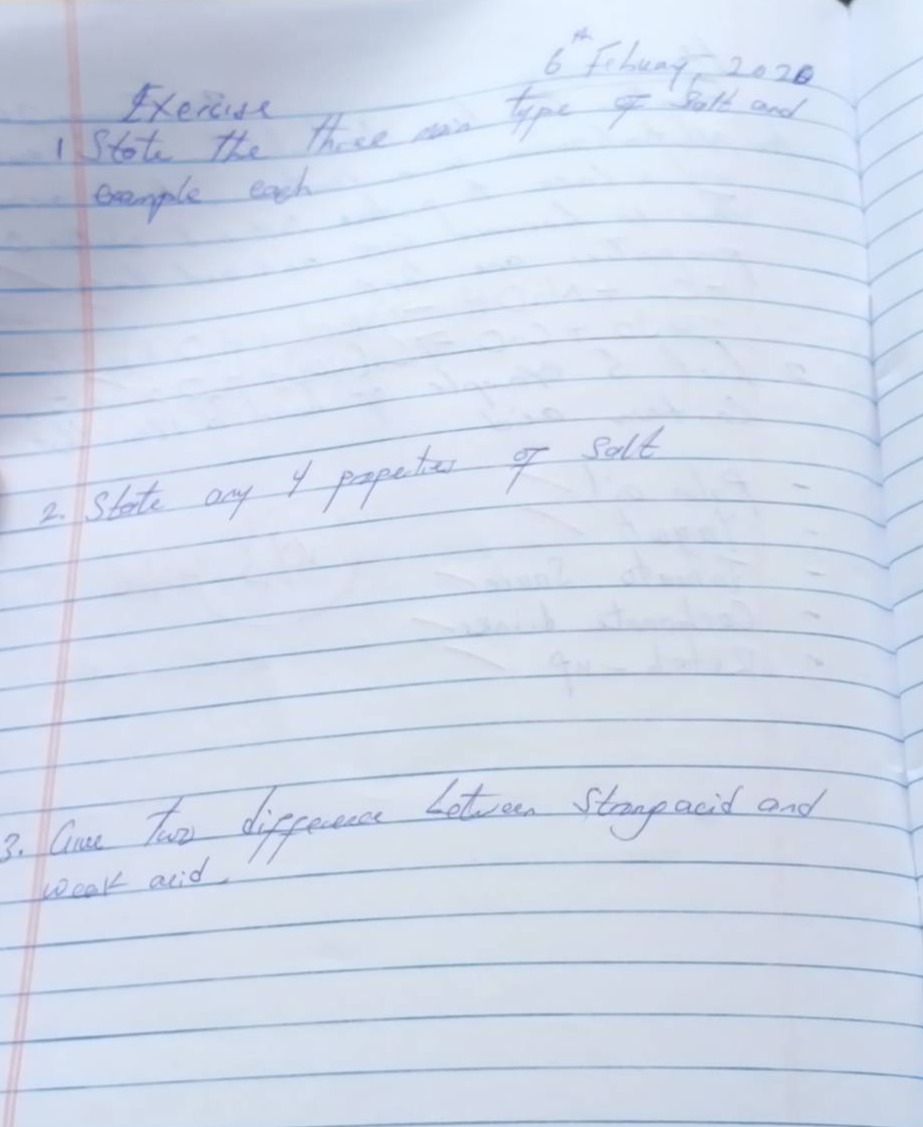 6th Febuary, 2026
Exercise
1 State the three main type of Salt and
example each
2. State any 4 properties of Salt
3. Give Two difference between Strong acid and
weak acid.